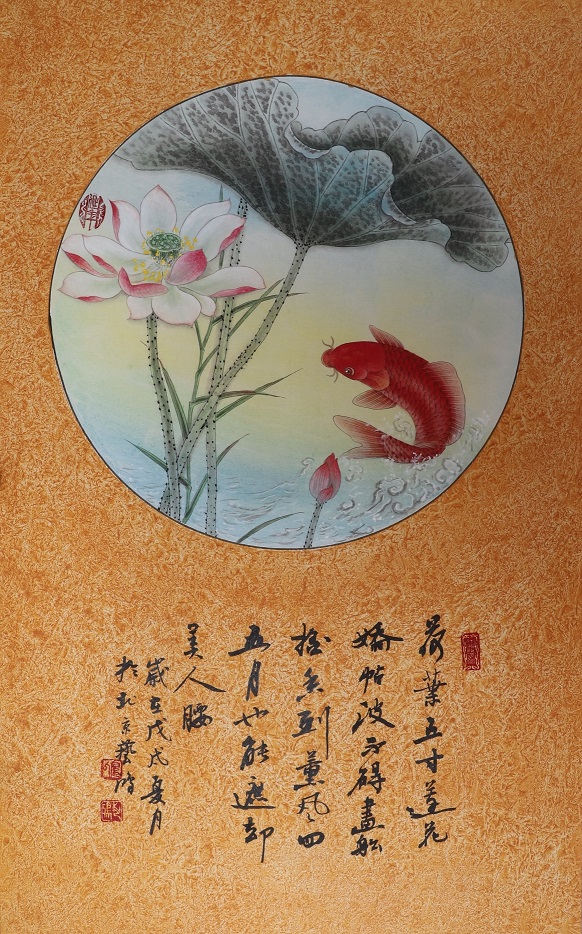 荷葉五寸蓮花
嬌帖波不碍畫船
摇到薰风四
五月也能遮却
美人腰
歲在戊戌夏月
於北京藝